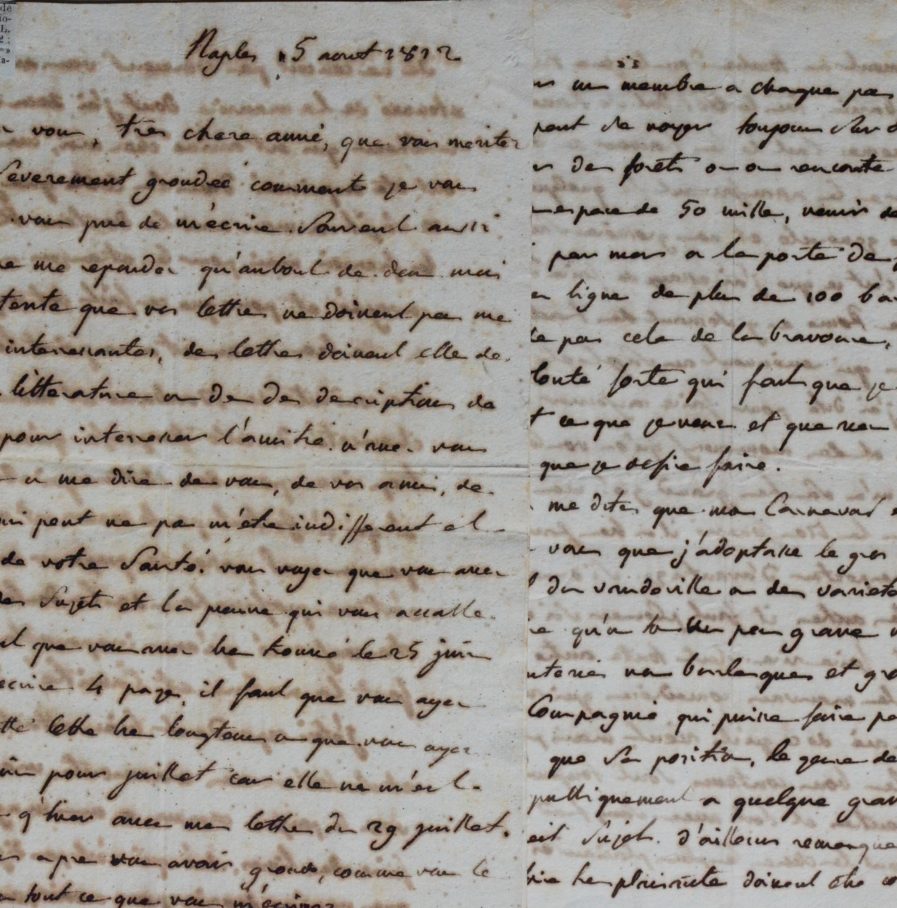 Naples 5 aout 1812
vous, tres chere amie, que vous meritez
severement grondée comment je vous
vous prie de m'ecrire souvent aussi
me repondez qu'aubout de deux mois
que vos lettres ne doivent pas me
interessantes, des lettres doivent elle de
litterature ou de des descriptions de
pour interesser l'amitié n'avez vous
a me dire de vous, de vos amis, de
qui peut ne pas m'etre indifferent et
de votre santé. vous voyez que vous avez
des sujets et la paresse qui vous accable
que vous avez le 25 juin
ecrire 4 pages, il faut que vous ayez
lettre longtems a que vous ayez
pour juillet car elle ne m'est
q'hier avec ma lettre du 29 juillet.
apres vous avoir grondé, comme vous le
tout ce que vous m'ecrivez
un membre a chaque pas
de voyager toujours sur
des forets ou on rencontre
espace de 50 mille, venir de
par mois a la porte de
ligne de plus de 100 ba
pas cela de la bravoure,
lonté forte qui fait que je
ce que je veux et que rien
que je desire faire.
me dites que mon Carnaval
vous que j'adoptasse le gros
du vaudeville ou des varietés
qu'un peu grave
non burlesques et gro
Compagnie qui puisse faire pa
que sa position, le genre de
publiquement a quelque gran
sujet. d'ailleurs remarquez
la plaisante doivent etre co